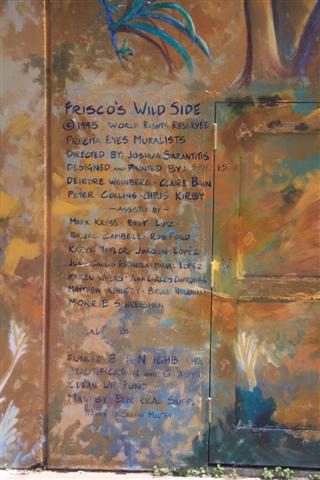 FRISCO'S WILD SIDE
©1995 WORLD RIGHTS RESERVED
PRECITA EYES MURALISTS
DIRECTED BY: JOSHUA SARANTITIS
DESIGNED AND PAINTED BY:
DEIRDRE WEINBERG · CLAIRE BAIN
PETER COLLINS · CHRIS KIRBY
— ASSISTED BY —
MARK KRESS · BRET LUIZ
BRUCE CAMBELL · ROB FORD
KARYN TAYLOR · JOAQUIN LOPEZ
MIGUEL LOPEZ
KAREN WEEKS · JUAN CARLOS
MATTHEW KENNEDY · BRUCE
MORRIE
BEAUTIFICATION AND
CLEAN UP FUND
ELECTRICAL SUPPLY